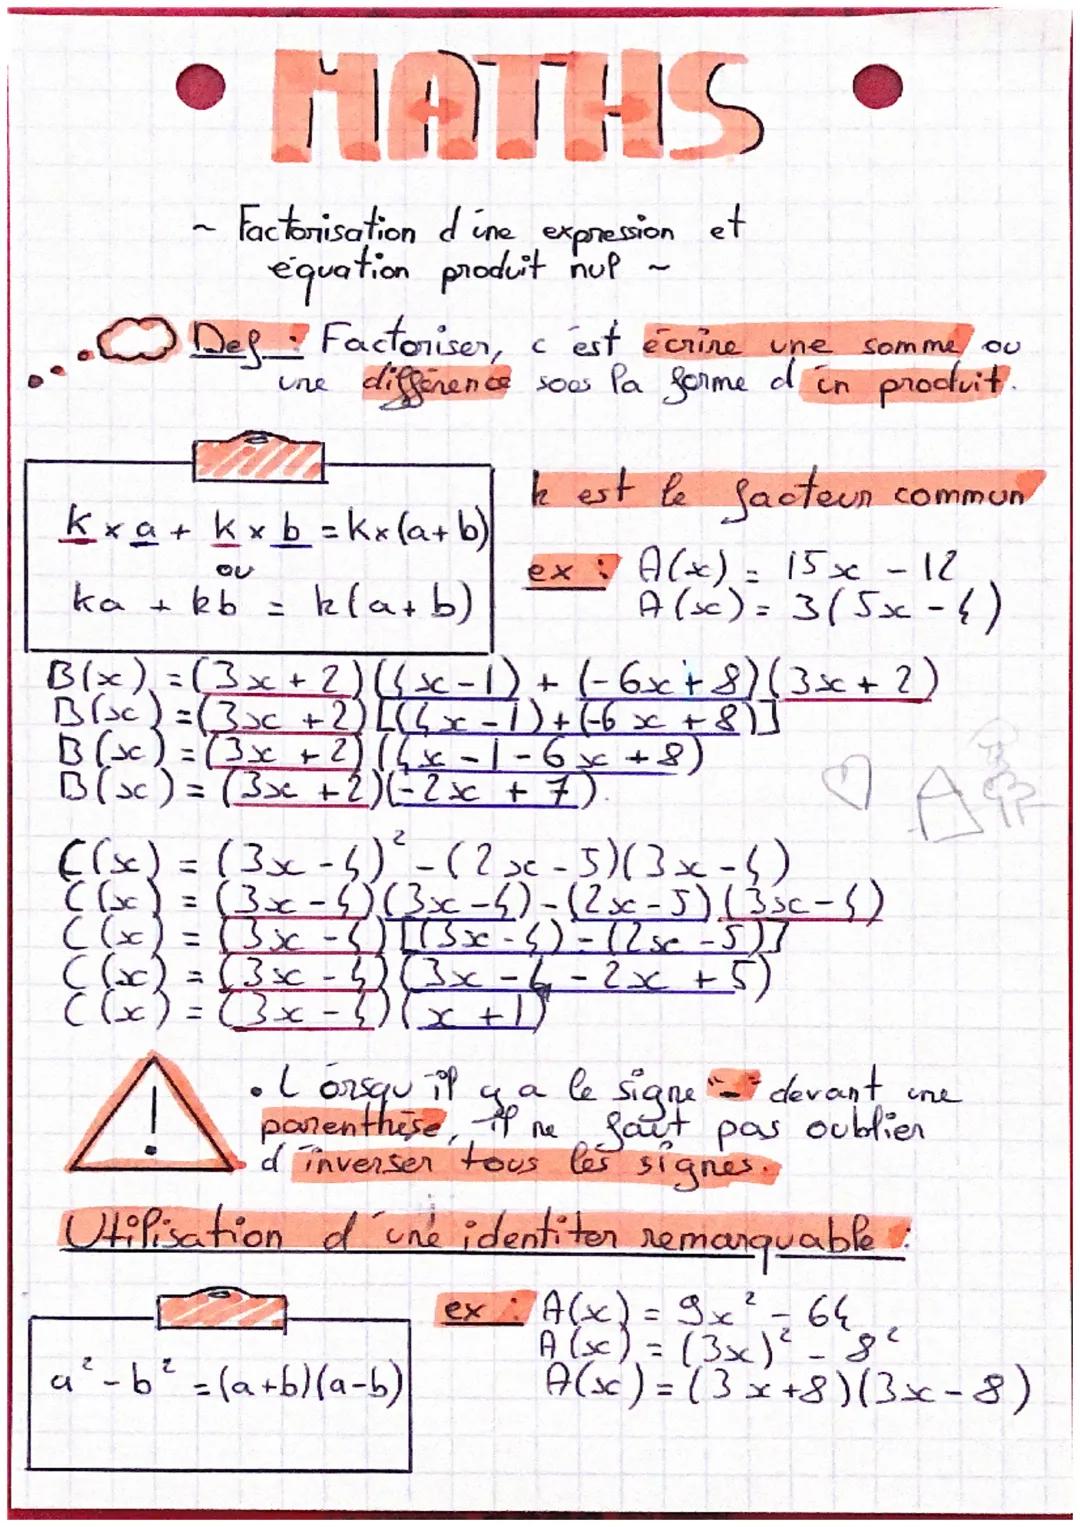 MATHS
~ Factorisation d'une expression et
équation produit nul ~
Def : Factoriser, c'est écrire une somme ou
une différence sous la forme d'un produit.
k × a + k × b = k × (a+b)
ou
ka + kb = k(a+b)
k est le facteur commun
ex : A(x) = 15x - 12
A(x) = 3(5x - 4)
B(x) = (3x + 2)(4x - 1) + (-6x + 8)(3x + 2)
B(x) = (3x + 2)[(4x - 1) + (-6x + 8)]
B(x) = (3x + 2)(4x - 1 - 6x + 8)
B(x) = (3x + 2)(-2x + 7).
C(x) = (3x - 4)² - (2x - 5)(3x - 4)
C(x) = (3x - 4)(3x - 4) - (2x - 5)(3x - 4)
C(x) = (3x - 4)[(3x - 4) - (2x - 5)]
C(x) = (3x - 4)(3x - 4 - 2x + 5)
C(x) = (3x - 4)(x + 1)
! • Lorsqu'il y a le signe "-" devant une
parenthèse, il ne faut pas oublier
d'inverser tous les signes.
Utilisation d'une identiter remarquable :
a² - b² = (a+b)(a-b)
ex : A(x) = 9x² - 64
A(x) = (3x)² - 8²
A(x) = (3x + 8)(3x - 8)